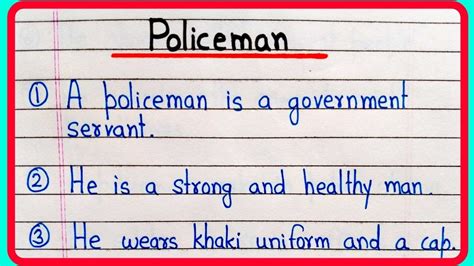 Policeman
① A policeman is a government
servant.
② He is a strong and healthy man.
③ He wears khaki uniform and a cap.